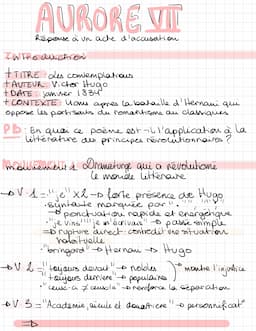 AURORE VII
Réponse à un acte d'accusation
Introduction
+ TITRE : les contemplations
+ AUTEUR : Victor Hugo
+ DATE : janvier 1834
+ CONTEXTE : 4 ans après la bataille d'Hernani qui
oppose les partisants du romantisme au classiques
PB : En quoi ce poème est-il l'application à la
littérature des principes révolutionnaires ?
mouvement 1 Dramaturge qui a révolutionné
le monde littéraire
→ V 1 = "je" x2 → forte présence de Hugo
syntaxe marquée par
→ ponctuation rapide et énergique
"je vins" "je m'écriais" → passé simple
→ rupture direct contredit une situation
habituelle
"brigand" → Hernani → Hugo
→ V 2 = "toujours devant" → nobles
"toujours derrière" → populaire
montre l'injustice
→ renforce la séparation
→ V 3 = "Academie, aïeule et douairière" → personnificat°